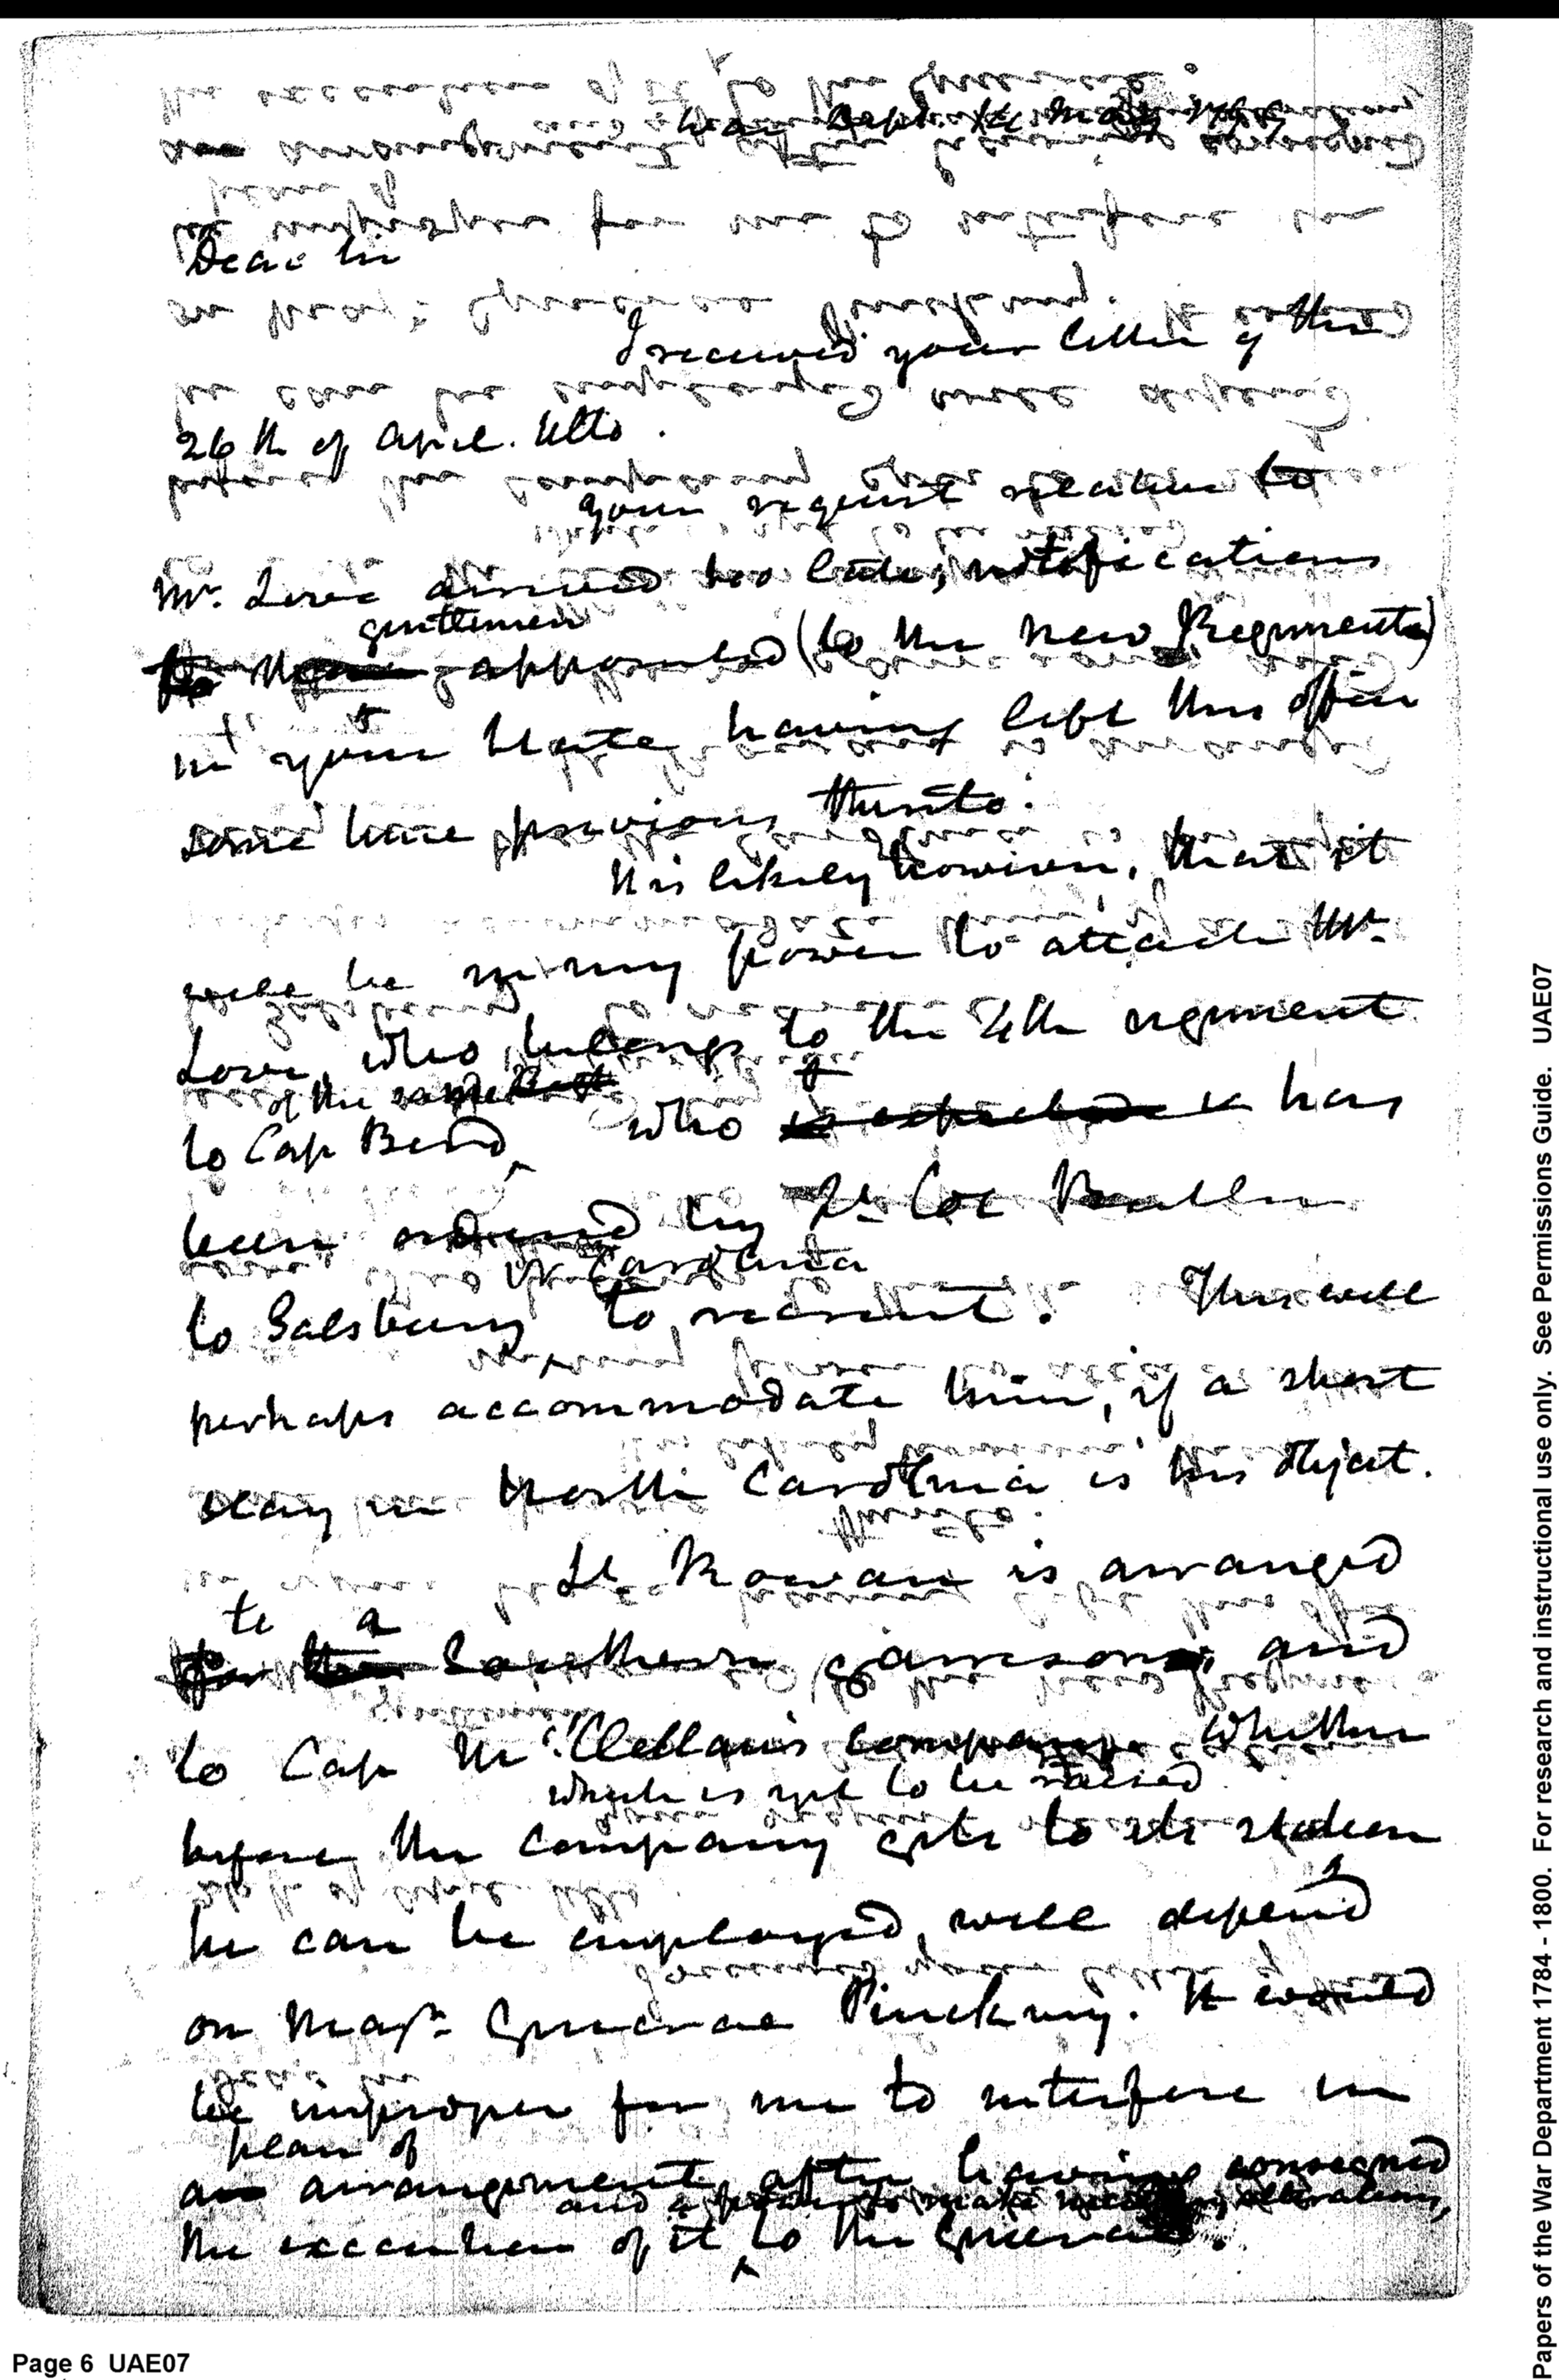 War Dept. 14 May 1799
Dear Sir
I received your letter of the
26th of April. Ulto.
Your request relative to
Mr. Love arrived too late, notifications
gentlemen
to appointed (to the new Regiments)
in your State, having left this office
some time previous thereto.
It is likely however, that it
will be in my power to attach Mr.
Love, who belongs to the 4th regiment
of the same
to Cap Beird, who is has
been ordered by Lt. Col Butler
N. Carolina
to Salsbury to recruit. This will
perhaps accommodate him, if a short
stay in North Carolina is his object.
Lt. Rowan is arranged
to a
for the Southern garrison, and
to Cap McClellan's company. Whether
which is yet to be raised
before the company gets to its station
he can be employed, will depend
on Majr. General Pinckney. It would
be improper for me to interfere in
plan of
an arrangement, after having consigned
and a power to make alterations,
the execution of it to the General.
Page 6 UAE07
Papers of the War Department 1784 - 1800. For research and instructional use only. See Permissions Guide. UAE07